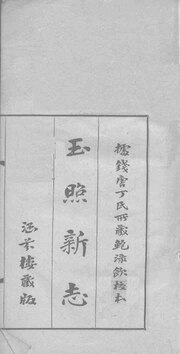 據錢唐丁氏所藏鮑淥飲校本
玉照新志
涵芬樓藏版